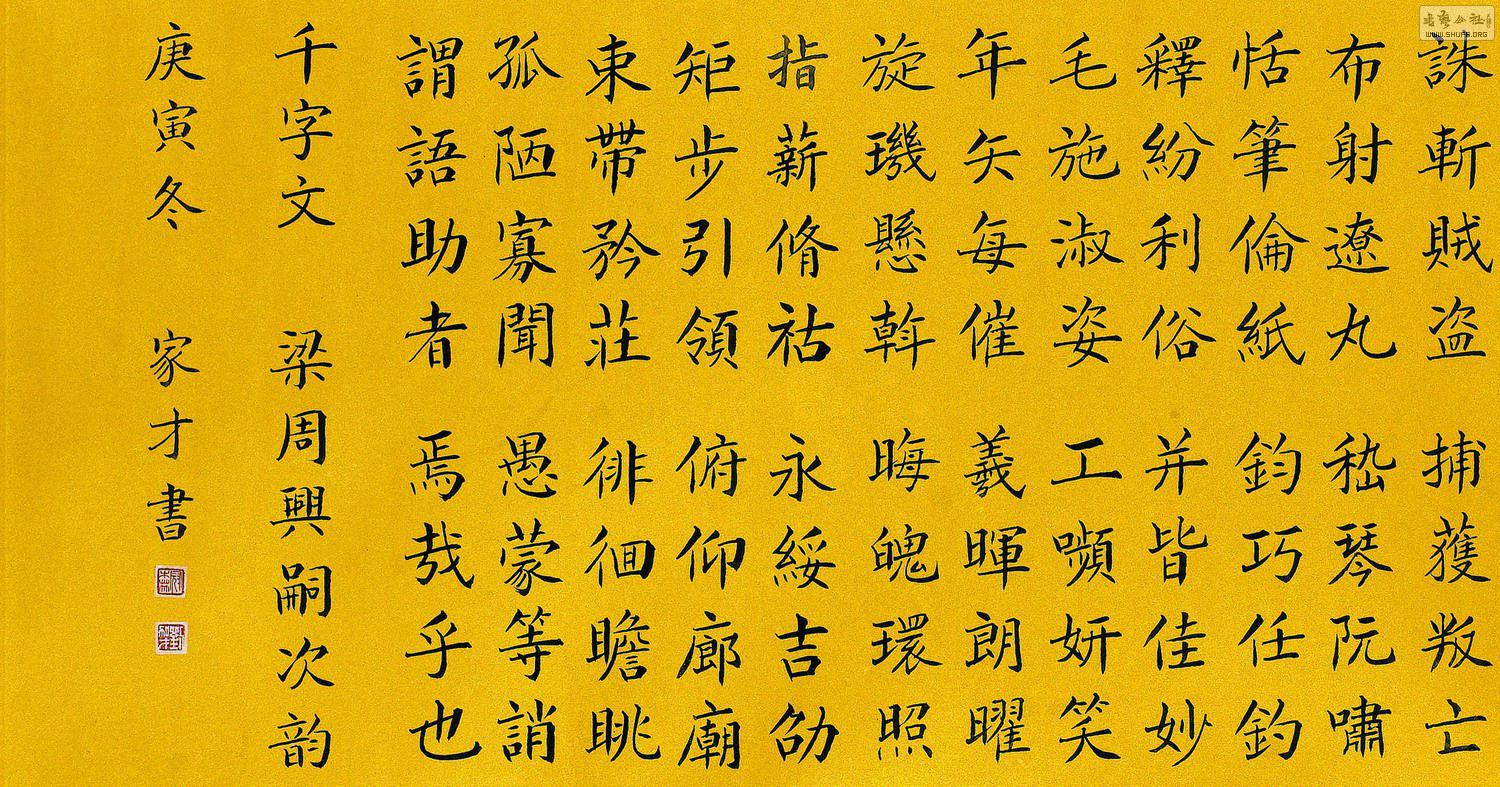 誅斬賊盗 捕獲叛亡
布射遼丸 嵇琴阮嘯
恬筆倫紙 鈞巧任釣
釋紛利俗 并皆佳妙
毛施淑姿 工嚬妍笑
年矢每催 羲暉朗曜
旋璣懸斡 晦魄環照
指薪脩祜 永綏吉劭
矩步引領 俯仰廊廟
束帶矜莊 徘徊瞻眺
孤陋寡聞 愚蒙等誚
謂語助者 焉哉乎也
千字文 梁周興嗣次韵
庚寅冬 家才書
WWW.SHUFA.ORG